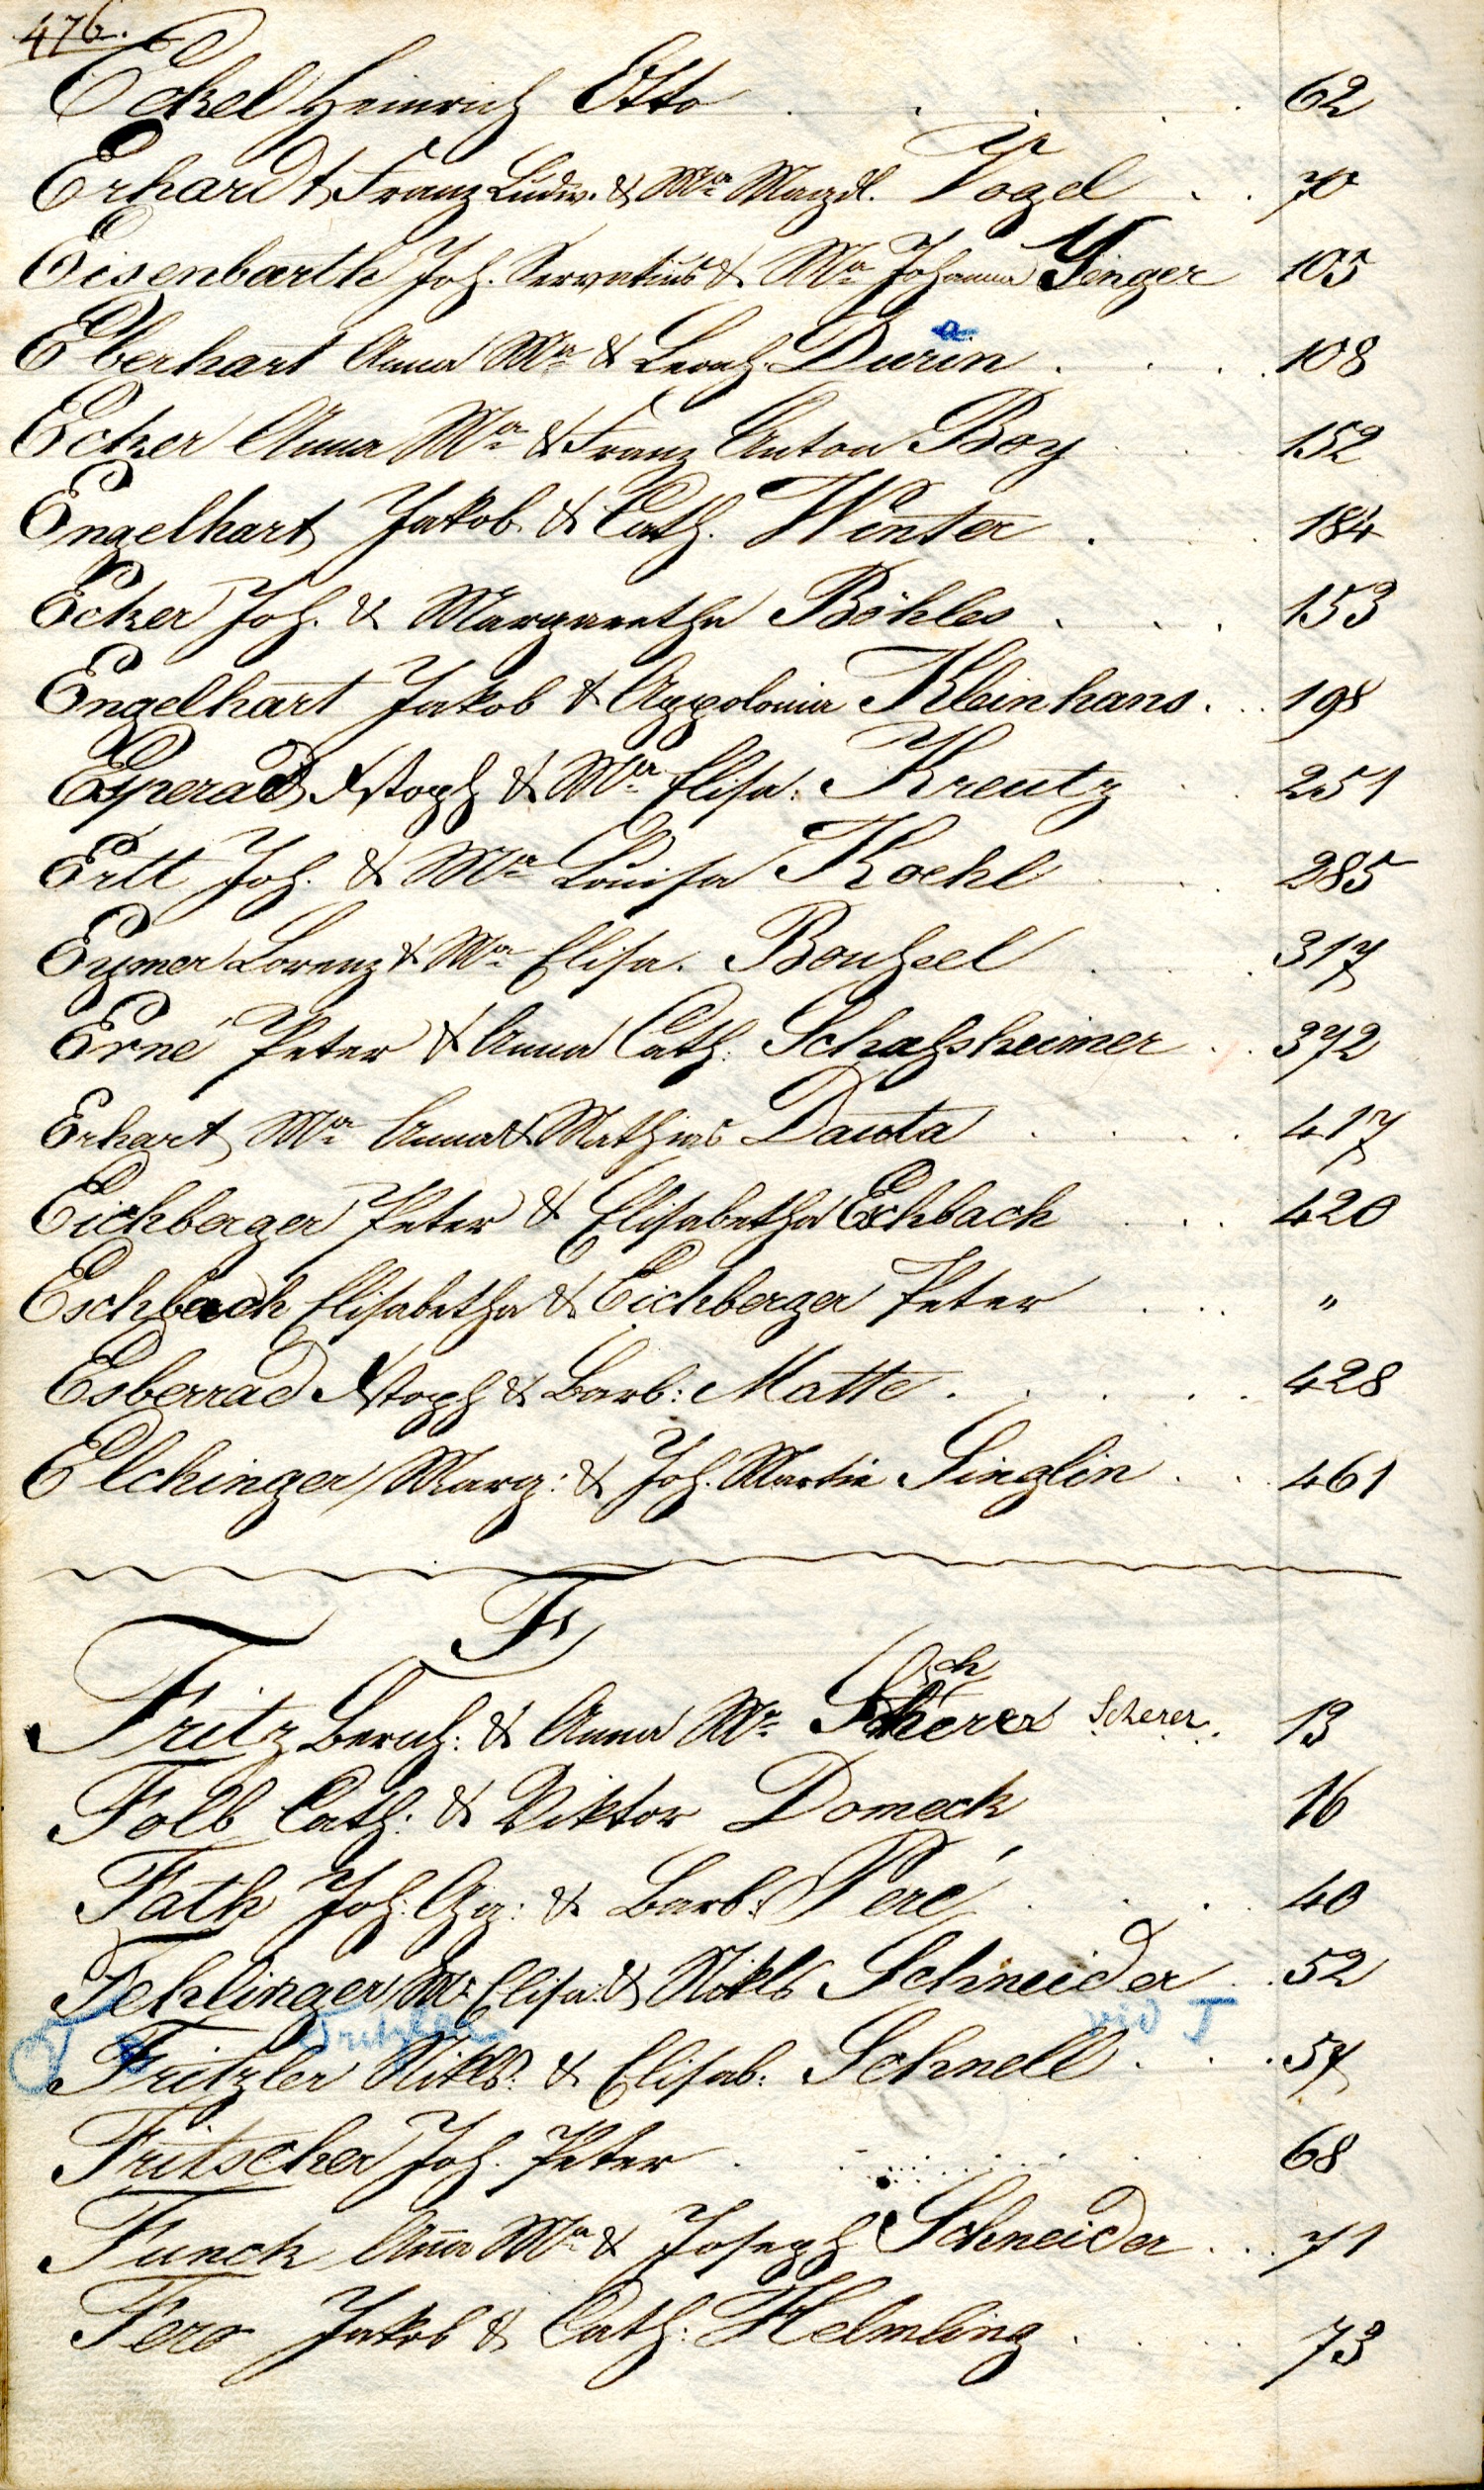 476.
Eckel Heinrich Otto . . . . 62
Erhardt Franz Ludw. & Ma Magdl. Vogel . . 70
Eisenbarth Joh. Servatius & Ma Johanna Ginger 105
Eberhart Anna Ma & Leonh. Durin . . . . 108
a
Ecker Anna Ma & Franz Anton Boy . . . 152
Engelhart Jakob & Cath. Winter . . . 184
Ecker Joh. & Margaretha Böhles . . . 153
Engelhart Jakob & Appolonia Kleinhans . . . 198
Esperad Xstoph & Ma Elisa: Kreutz . . 251
Ertt Joh. & Ma Louisa Koehl . . . 285
Eymer Lorenz & Ma Elisa. Bouhsel . . . 317
Erné Peter & Anna Cath: Schahsheimer . . 372
Erhart Ma Anna & Mathias Dauta . . . . 417
Eichberger Peter & Elisabetha Eschbach . . . 420
Eschbach Elisabetha & Eichberger Peter . . . "
Esberrad Xstoph & Barb: Matte . . . . . 428
Elchinger Marg: & Joh. Martin Singlin . . 461
F
Fritz Bernh: & Anna Ma Scherer Scherer. 13
ch
Folb Cath: & Viktor Domeck 16
Fath Joh: Gg: & Barb: Peré . . . 40
Fehlinger Ma Elisa: & Nikls Schneider . . 52
vid T
Fritzler Nikls: & Elisab: Schnell . . . 57
Fritscher Joh. Peter . . . . 68
Funck Aña Ma & Joseph Schneider . . . 71
Fero Jakob & Cath: Helmling . . . 73